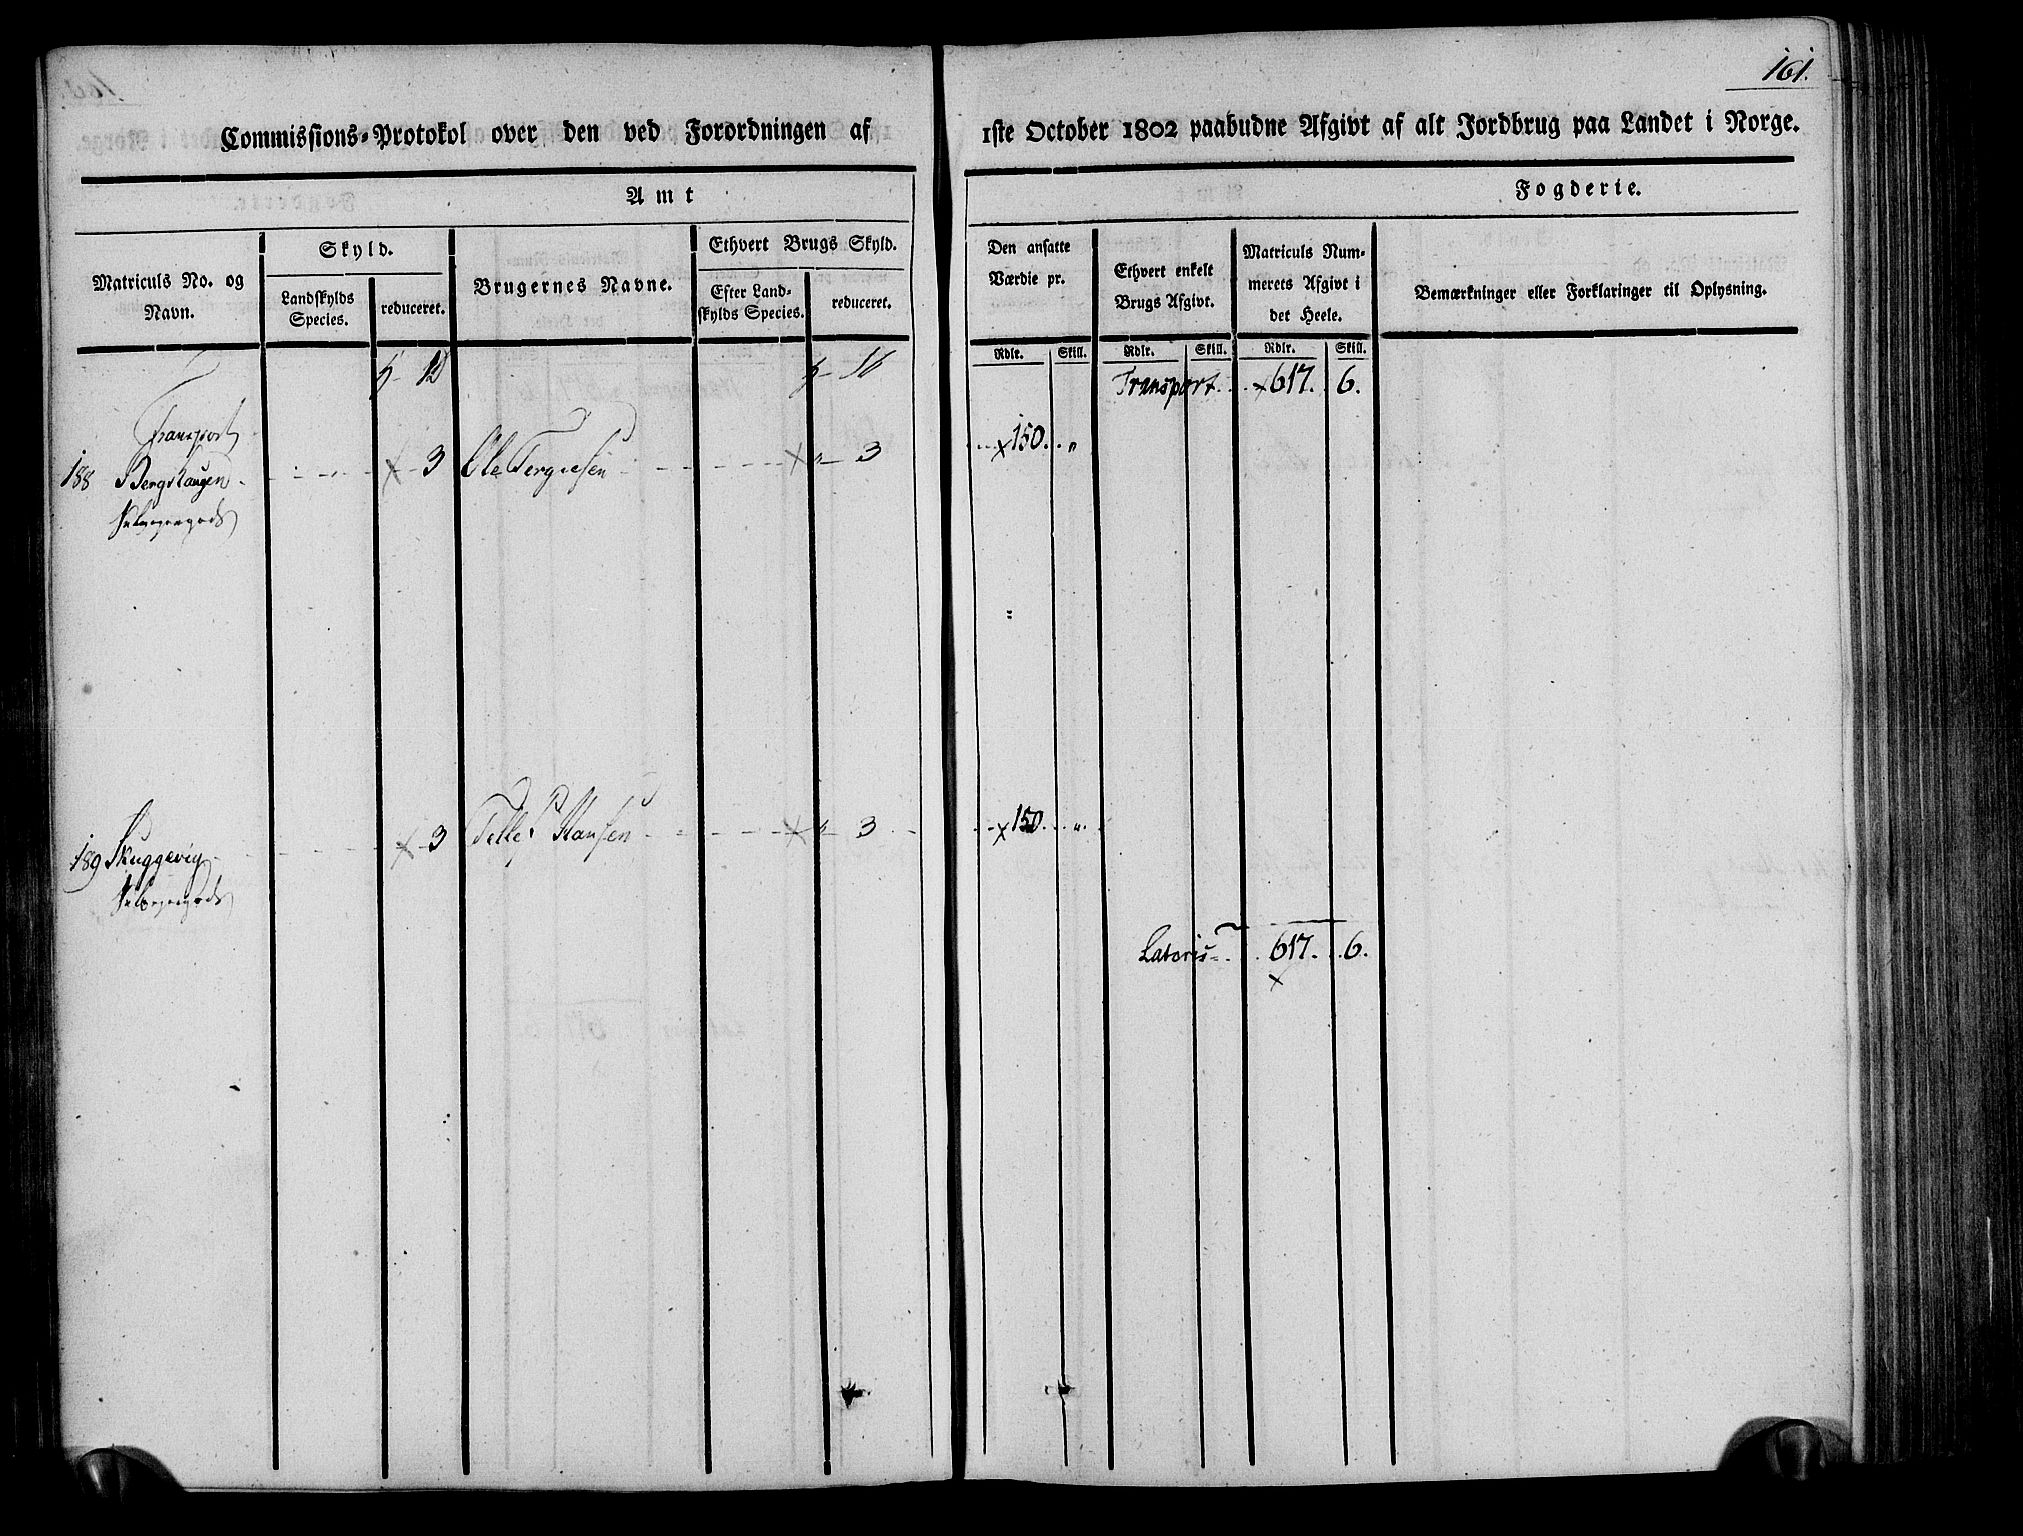 161.
Commissions-Protokol over den ved Forordningen af 1ste October 1802 paabudne Afgivt af alt Jordbrug paa Landet i Norge.
Amt Fogderie.
Matriculs No. og Navn.
Skyld.
Landskylds Species.
reduceret.
Brugernes Navne.
Ethvert Brugs Skyld.
Efter Landskylds Species.
reduceret.
Den ansatte Værdie pr.
Rdlr. Skill.
Ethvert enkelt Brugs Afgivt.
Rdlr. Skill.
Matriculs Nummerets Afgivt i det Heele.
Rdlr. Skill.
Bemærkninger eller Forklaringer til Oplysning.
Transport 617. 6.
Transport
188 3 Ole 3 150. "
Selveyergods
189 Skuggevig 3 Tellef Hansen 3 150. "
Selveyergods
Lateris 617. 6.